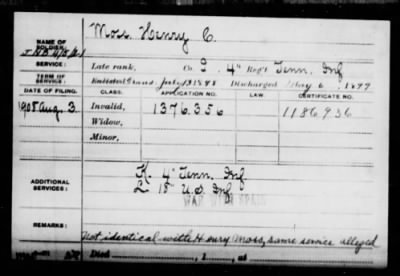 NAME OF SOLDIER: Moss, Henry C.
SERVICE: Late rank, Co. I, 4" Reg't Tenn. Inf
TERM OF SERVICE: Enlisted July 13 1898 Discharged May 6, 1899
DATE OF FILING. CLASS. APPLICATION NO. LAW. CERTIFICATE NO.
1908 Aug. 3 Invalid, 1376.356 1186936
Widow,
Minor,
ADDITIONAL SERVICES: K. 4" Tenn. Inf
L 15" U.S. Inf
WAR WITH SPAIN
REMARKS: Not identical with Henry Moss, same service alleged
Died , 1 , at